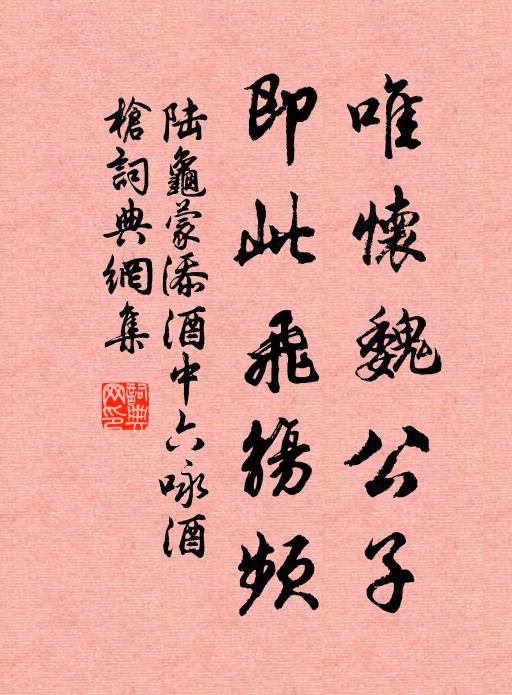 唯懷魏公子
即此飛觴頻
陆龜蒙添酒中六咏酒
槍詞典網集
詞典网印